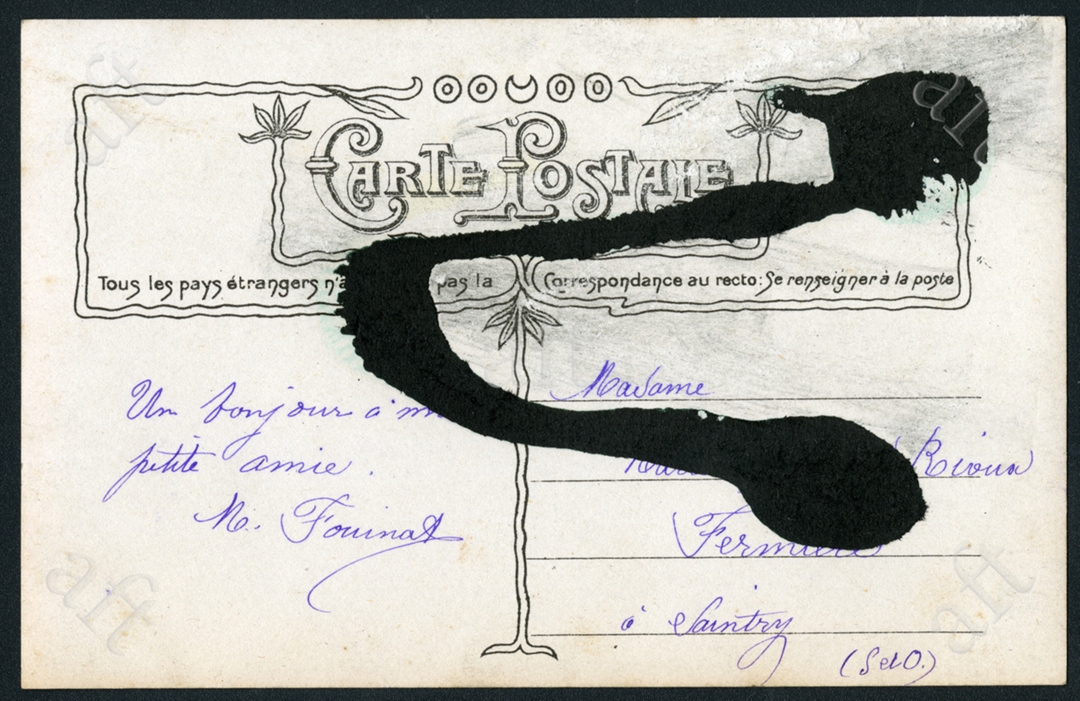 CARTE POSTALE
Tous les pays étrangers n'a pas la Correspondance au recto: Se renseigner à la poste
Un bonjour à
petite amie.
M. Fouinat
Madame
Rioux
Fermière
à Saintry
(S et O.)
aft
aft
aft
aft